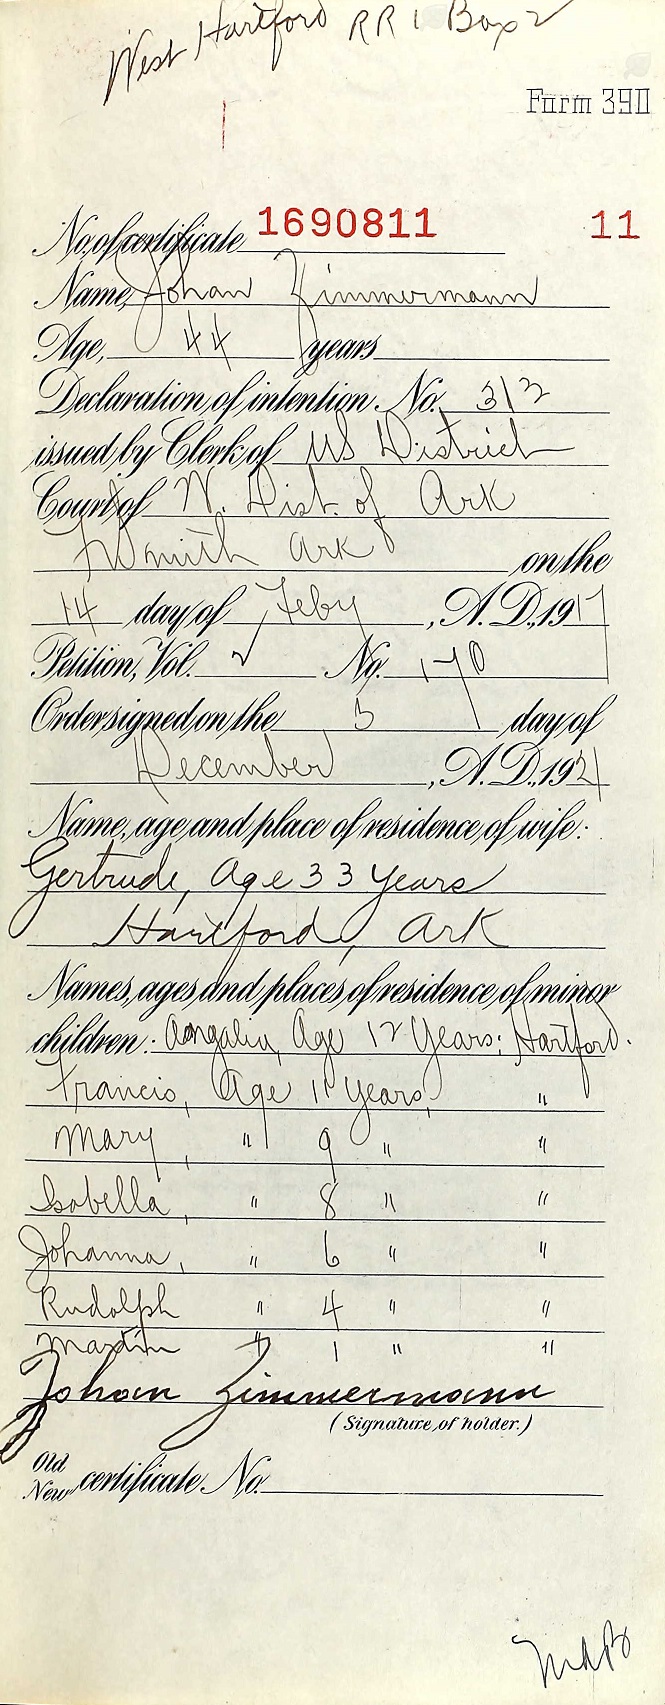 West Hartford RR 1 Box 2
Form 390
No. of certificate 1690811 11
Name, Johan Zimmermann
Age, 44 years
Declaration of intention No. 312
issued by Clerk of US District
Court of W. Dist. of Ark
Ft Smith Ark on the
14 day of Feby, A.D., 1917
Petition, Vol. 2 No. 170
Order signed on the 5 day of
December, A.D., 1921
Name, age, and place of residence, of wife:
Gertrude, Age 33 Years
Hartford, Ark
Names, ages, and places of residence, of minor
children: Age 12 Years; Hartford.
Francis, Age 11 Years, "
Mary, " 9 " "
Isabella, " 8 " "
Johanna, " 6 " "
Rudolph " 4 " "
Martin " 1 " "
Johan Zimmermann
(Signature, of holder.)
Old
New certificate No.